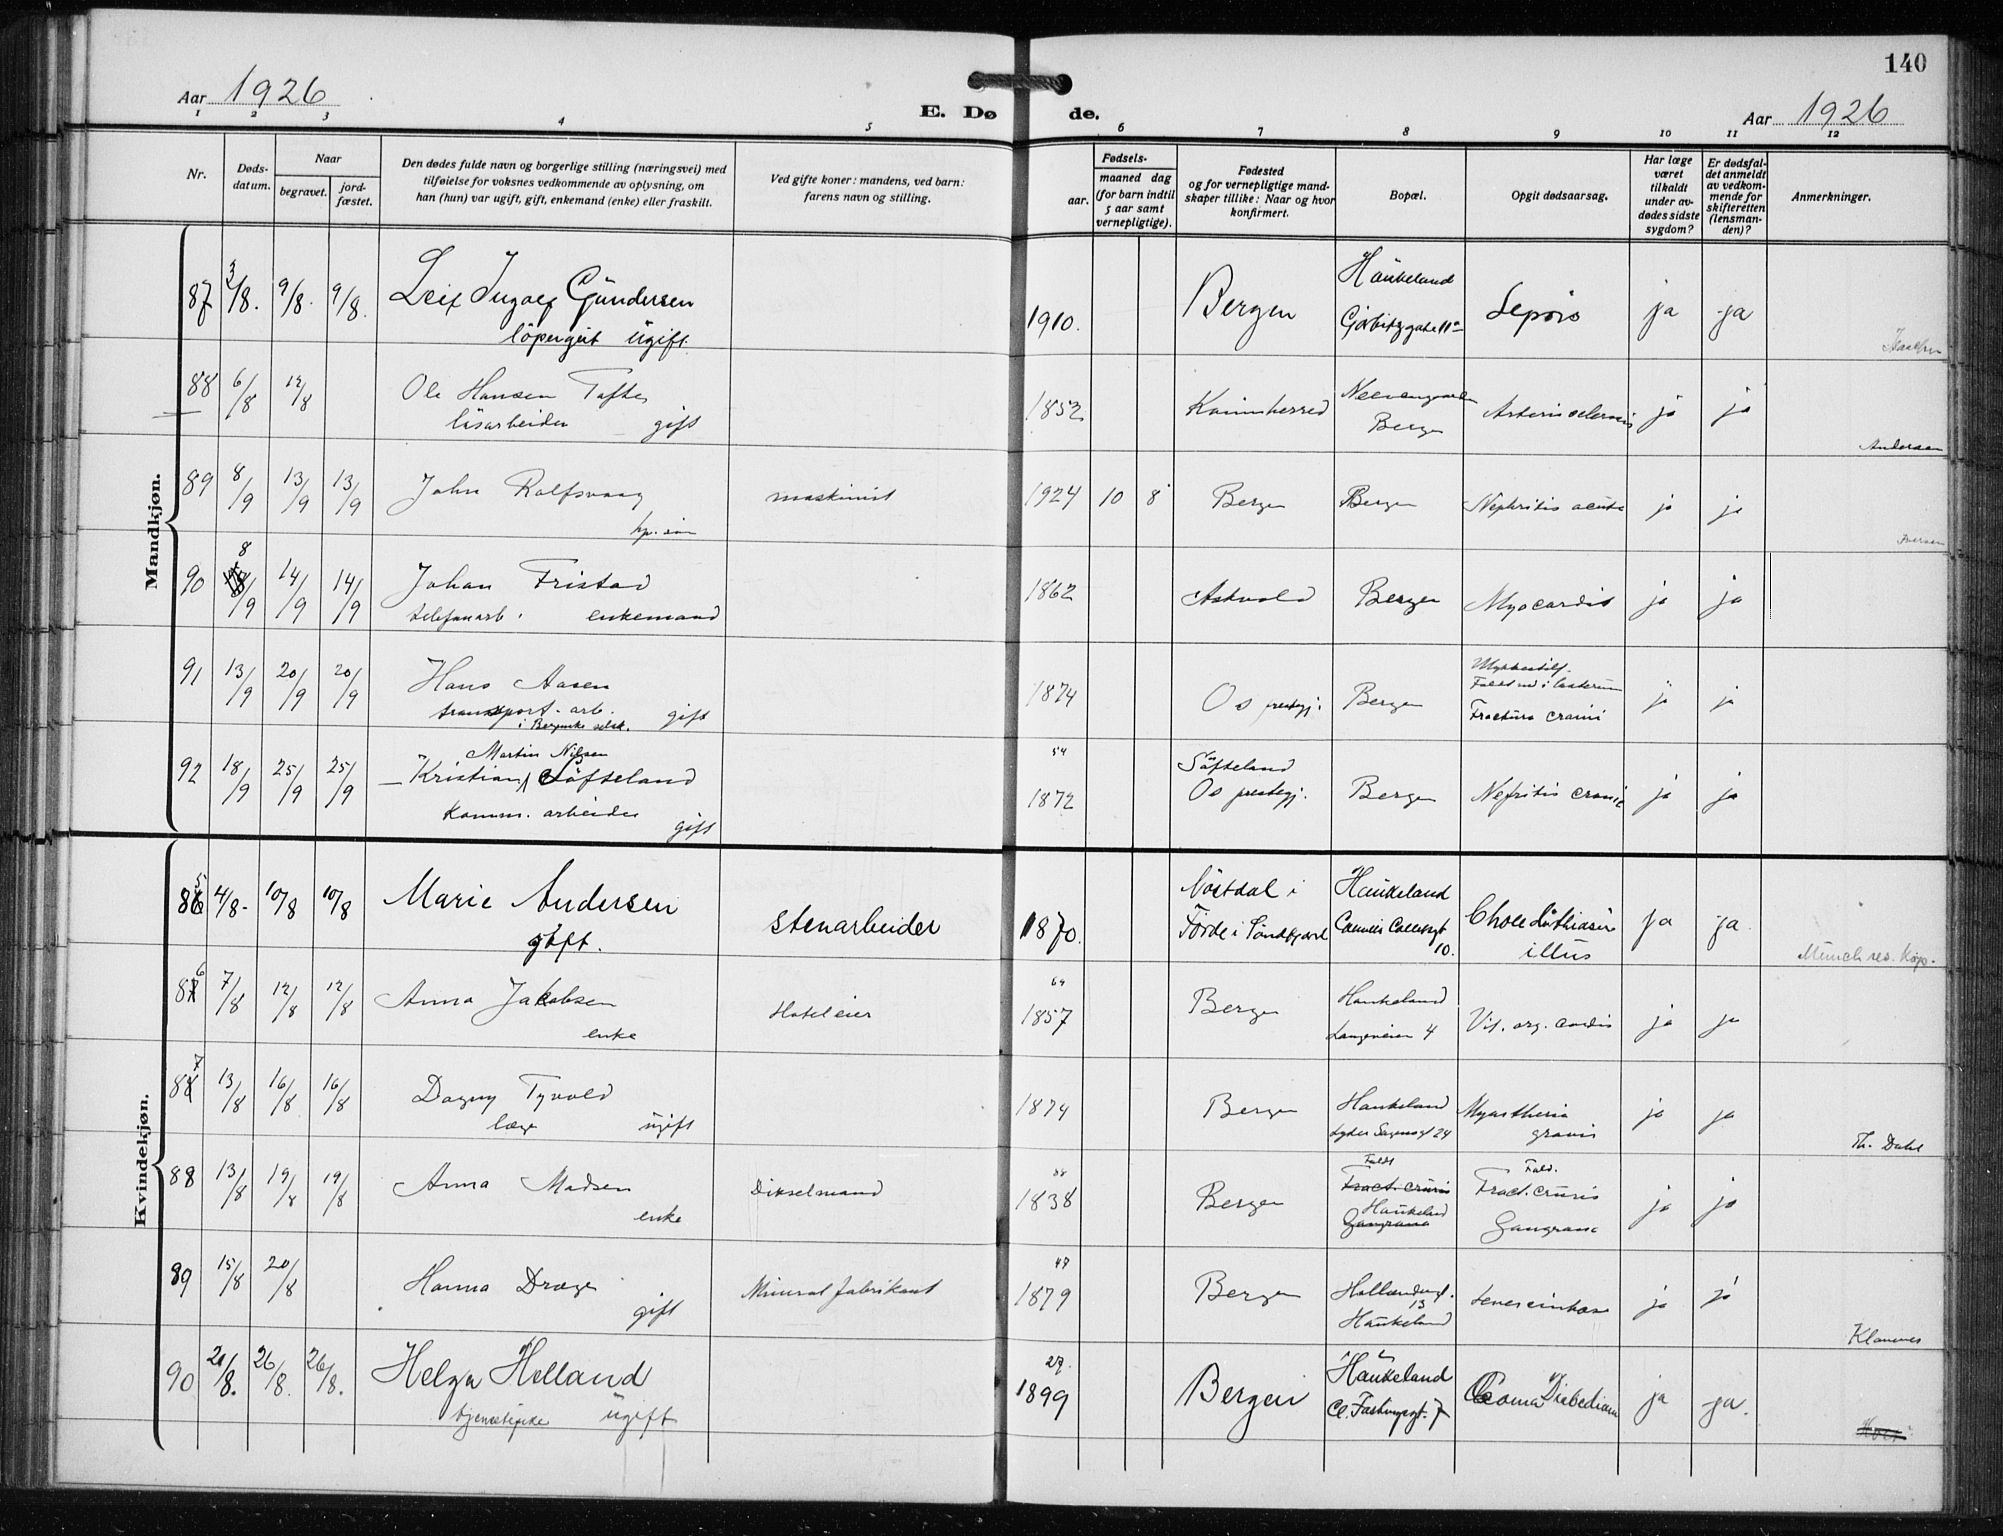 140
Aar 1926
E. Dø de.
Aar 1926
1 2 3 4 5 6 7 8 9 10 11 12
Nr.
Døds-
datum.
Naar
begravet.
jord-
fæstet.
Den dødes fulde navn og borgerlige stilling (næringsvei) med
tilføielse for voksnes vedkommende av oplysning, om
han (hun) var ugift, gift, enkemand (enke) eller fraskilt.
Ved gifte koner: mandens, ved barn:
farens navn og stilling.
Fødsels-
aar.
maaned dag
(for barn indtil
5 aar samt
vernepligtige).
Fødested
og for vernepligtige mand-
skaper tillike: Naar og hvor
konfirmert.
Bopæl.
Opgit dødsaarsag.
Har læge
været
tilkaldt
under av-
dødes sidste
sygdom?
Er dødsfal-
det anmeldt
av vedkom-
mende for
skifteretten
(lensman-
den)?
Anmerkninger.
Mandkjøn.
87 3/8. 9/8. 9/8. Leif Ingolf Gundersen 1910. Bergen Haukeland Sepsis ja ja
løpergut ugift
88 6/8 12/8 Ole Hansen Tofte 1852 Kvinnherred Neevengaarden Arteriosclerosis ja ja
løsarbeider gift Bergen
Andersen
89 8/9 13/9 13/9 John Rolfsvaag maskinist 1924 10 8 Bergen Bergen Nephritis acuta ja ja
Iversen
90 8/9 14/9 14/9 Johan Fristad 1862 Askvold Bergen Myocardit ja ja
telefonarb. enkemand
91 13/9 20/9 20/9 Hans Aasen 1874 Os prestegj. Bergen Fractura cranii ja ja
transport. arb. gift
i Bergenske selsk.
92 18/9 25/9 25/9 Martin Nilsen
Kristian Søfteland 54 1872 Søfteland
Os prestegj. Bergen Nefritis cronic ja ja
komm. arbeider
gift
Kvindekjøn.
85 4/8- 10/8 10/8 Marie Andersen stenarbeider 1870. Førde i Søndfjord Haukeland 10. illus ja ja
gift. Münch res. kap.
86 7/8 12/8 12/8 Anna Jakobsen Hoteleier 69 1857 Bergen Haukeland Vit. org. cordis ja ja
enke Langeveien 4
87 13/8 16/8 16/8 Dagny Tyvold 1874 Bergen Haukeland Myasthenia ja ja
læge ugift Lyder Sagensgt 24 gravis
Th. Dahl
88 13/8 19/8 19/8 Anna Madsen Dikselmand 88 1838 Bergen Fald. ja ja
enke Fract. cruris Haukeland Fract. cruris
Gangræna Gangræna
89 15/8 20/8 Hanna Dræge Mineral fabrikant 47 1879 Bergen 13 Levercirrhose ja ja
gift Haukeland
90 21/8. 26/8. 26/8. Helga Helland 27. 1899 Bergen Haukeland Coma Diabedicum ja ja.
tjenestepike ugift Cl. Fastingsgt. 7